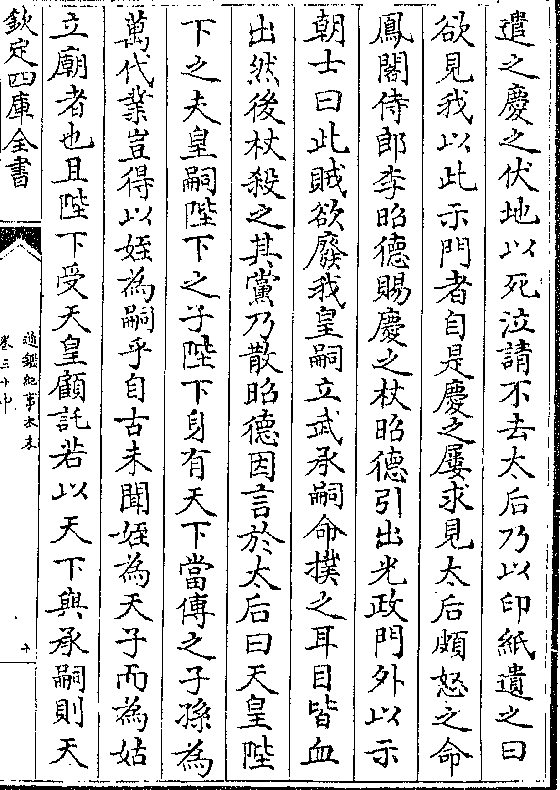 遣之慶之伏地以死泣請不去太后乃以印紙遺之曰
欲見我以此示門者自是慶之屢求見太后頗怒之命
鳳閣侍郎李昭德賜慶之杖昭德引出光政門外以示
朝士曰此賊欲廢我皇嗣立武承嗣命撲之耳目皆血
出然後杖殺之其黨乃散昭德因言於太后曰天皇陛
下之夫皇嗣陛下之子陛下身有天下當傳之子孫為
萬代業豈得以姪為嗣乎自古未聞姪為天子而為姑
立廟者也且陛下受天皇顧託若以天下與承嗣則天
欽定四庫全書
通鑑紀事本末
卷三十中